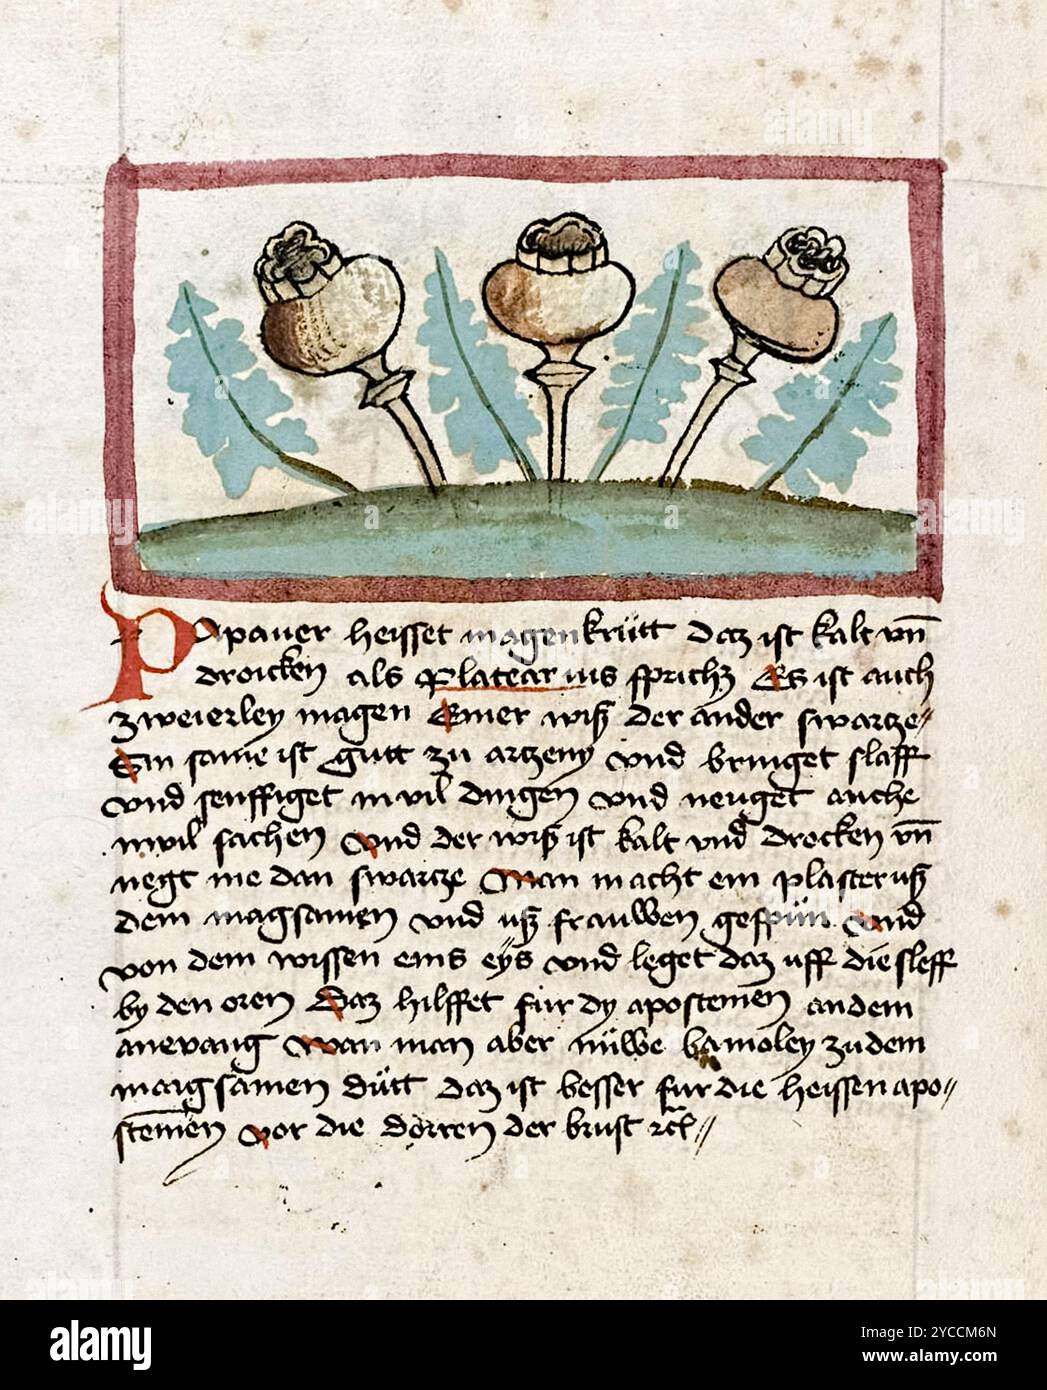 Papauer heisset magenkrütt daz ist kalt vn̄
droicken als Platearius sprichz Es ist auch
zweierley magen Einer wiß der ander swartze
Sin same ist gutt zu artzeny vnd bringet slaff
vnd senfftiget in vil dingen vnd neuget auche
in vil sachen vnd der wiß ist kalt vnd drocken vn̄
negt me dan swartze Man macht ein plaster uß
dem magsamen vnd uß frauwen gespün vnd
von dem wissen eins eÿs vnd leget daz uff die sleff
by den oren Daz hilffet fur dy apostemen an dem
anevang wan man aber nüwe bamoley zu dem
magsamen dütt daz ist besser fur die heissen apo//
stemen vor die dorren der brust //
alamy
Image ID: 2YCCM6N
www.alamy.com